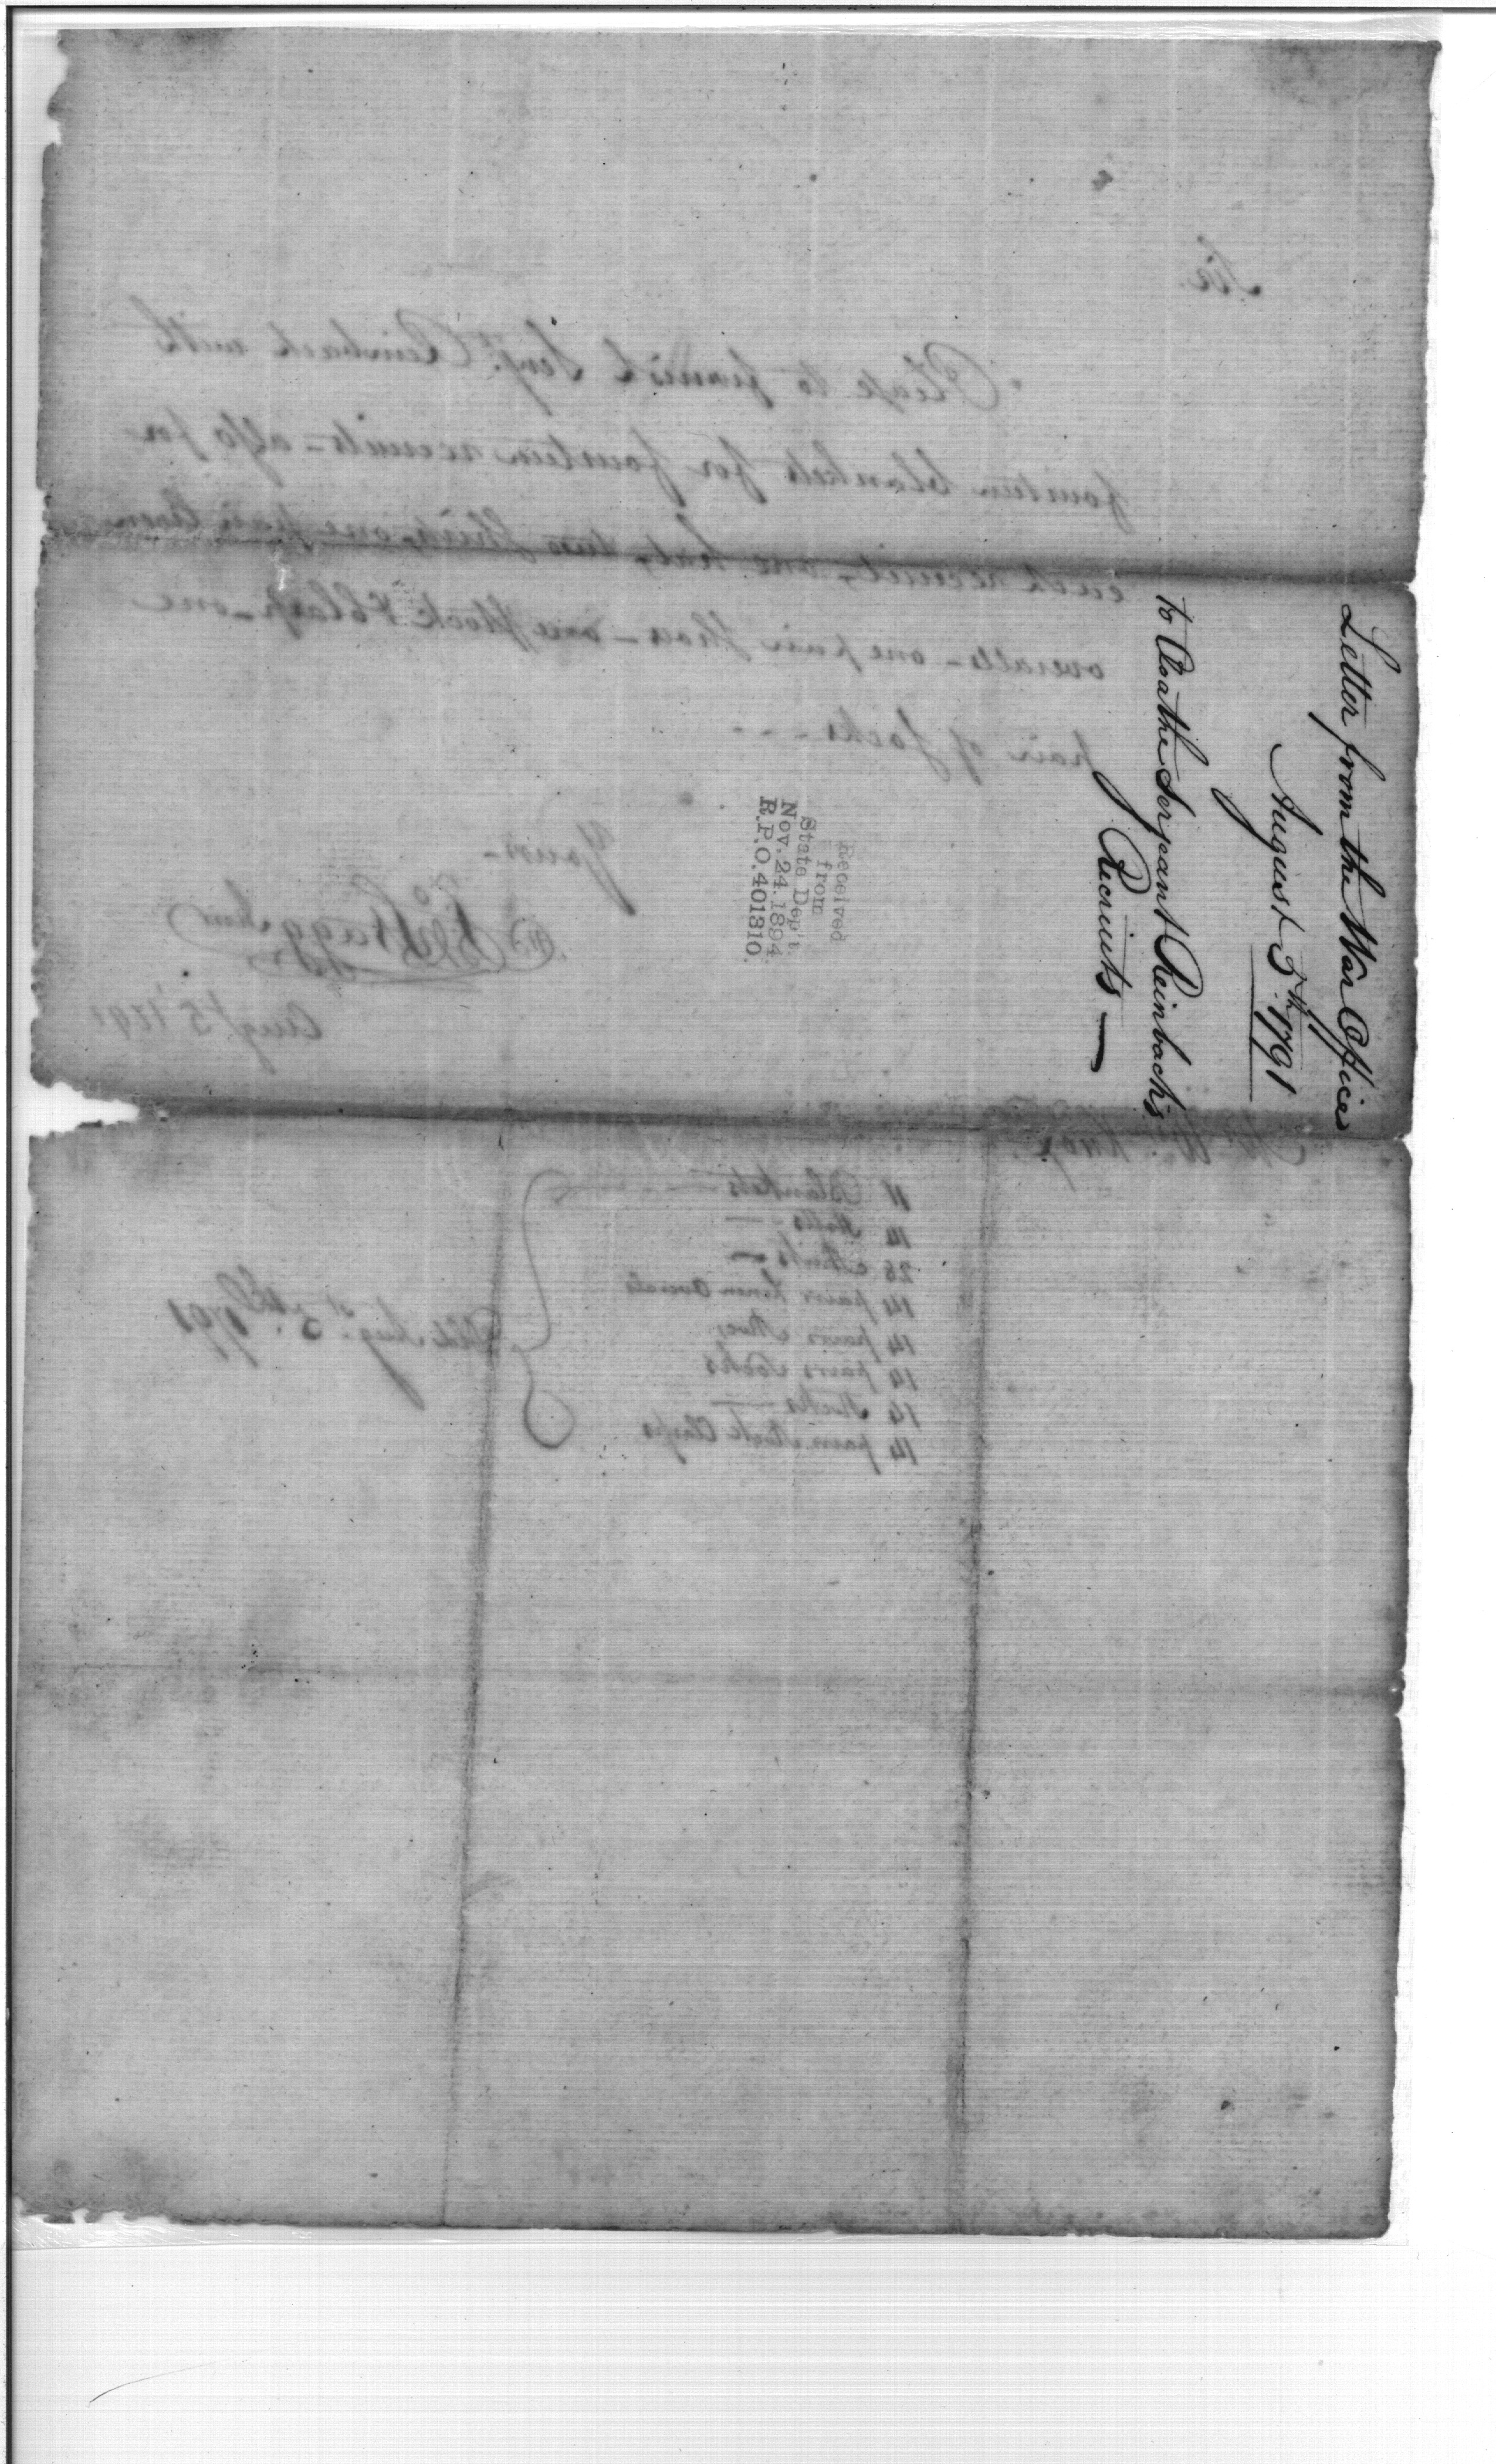 Letter from the War Office
August 5th. 1791
to Cloathe Serjeant Reinback's
Recruits —
Received
from
State Dep't.
Nov. 24. 1894.
R.P.O. 401310.
Sir
Please to furnish Serjt. Reinback with
fourteen blankets for fourteen recruits – also for
each recruit, one hat, two shirts, one pair linen
overalls – one pair shoes – one stock & clasp – one
pair of socks - - -
Yours –
Augt 5 1791
Knox
14 Blankets
14 Hatts
28 Shirts
14 pairs Linen Overalls
14 pairs Shoes
14 pairs Socks
14 Stocks
14 pairs Stock Clasps